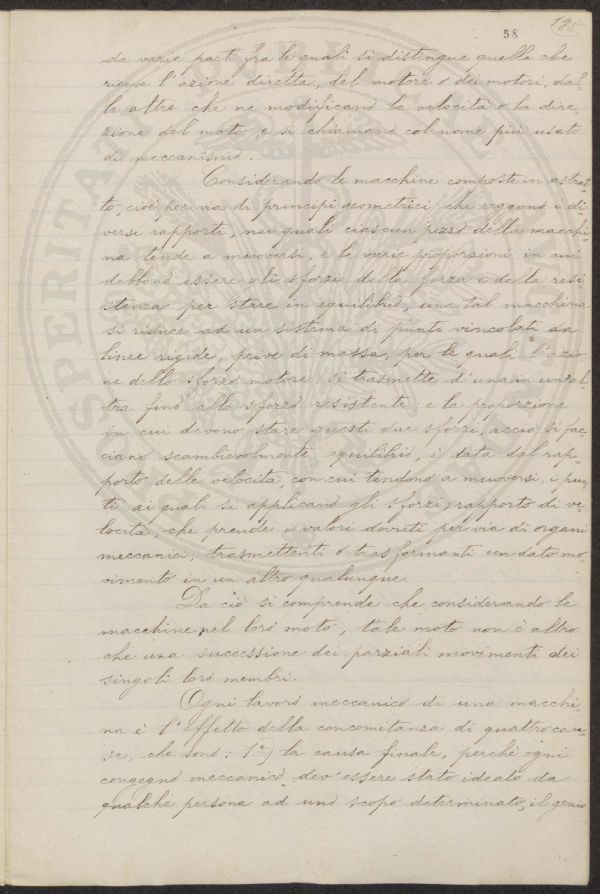 58
125
da varie parti fra le quali si distingue quella che
riceve l'azione diretta, del motore o dei motori, dal-
le altre che ne modificano la velocità o la dire-
zione del moto, e si chiamano col nome più usato
di meccanismo.
Considerando le macchine composte in astrat
to, cioè per via di principi geometrici che reggono i di-
versi rapporti, nei quali ciascun pezzo della macchi-
na tende a muoversi, e le varie proporzioni in cui
debbono essere gli sforzi della forza e della resi
stenza per stare in equilibrio, una tal macchina
si riduce ad un sistema di punti vincolati da
linee rigide, prive di massa, per le quali l'azio
ne dello sforzo motore si trasmette d'una in un'al
tra fino allo sforzo resistente e la proporzione
in cui devono stare questi due sforzi, acciò si fac-
ciano scambievolmente equilibrio, è data dal rap-
porto delle velocità, con cui tendono a muoversi, i pun-
ti ai quali si applicano gli sforzi; rapporto di ve-
locità, che prende i valori dovuti per via di organi
meccanici, trasmettenti o trasformanti un dato mo-
vimento in un altro qualunque.
Da ciò si comprende che, considerando le
macchine nel loro moto, tale moto non è altro
che una successione dei parziali movimenti dei
singoli loro membri.
Ogni lavoro meccanico di una macchi
na è l'effetto della concomitanza di quattro cau-
se, che sono: 1°) la causa finale, perchè ogni
congegno meccanico dev'essere stato ideato da
qualche persona ad uno scopo determinato, il genio